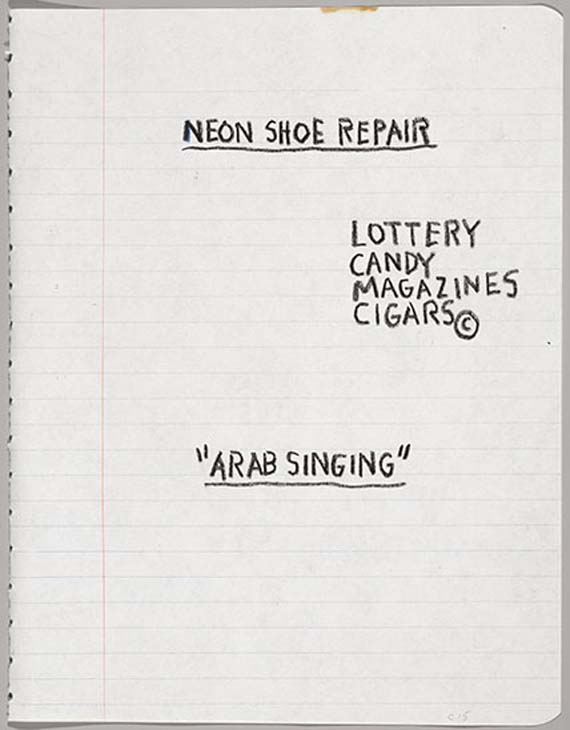 NEON SHOE REPAIR
LOTTERY
CANDY
MAGAZINES
CIGARS©
"ARAB SINGING"